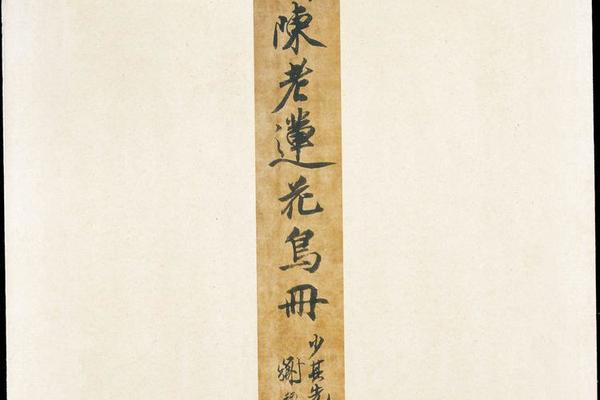 陳老蓮花鳥冊
少其先
謝